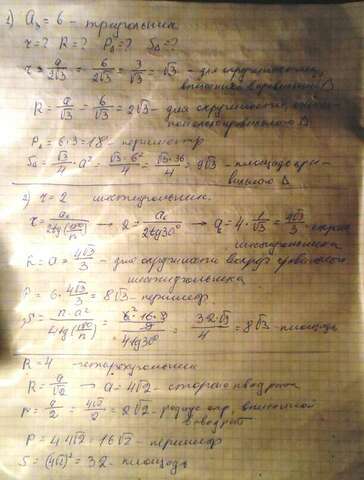 1) a₃ = 6 - треугольник
r = ? R = ? P₃ = ? S₃ = ?
r = a/2√3 = 6/2√3 = 3/√3 = √3 - для окружности,
вписанной в правильный Δ
R = a/√3 = 6/√3 = 2√3 - для окружности,
правильного Δ
P₃ = 6·3 = 18 - периметр
S₃ = √3/4 · a² = √3·6²/4 = √3·36/4 = 9√3 - площадь
Δ
2) r = 2 шестиугольник
r = a₆/2tg(180°/n) → 2 = a₆/2tg30° → a = 4·1/√3 = 4√3/3 -
шестиугольника
R = a = 4√3/3 - для окружности вокруг
шестиугольника
P = 6·4√3/3 = 8√3 - периметр
S = n·a²/4tg(180°/n) = /4tg30° = /4 = 8√3 - площадь
R = 4 - четырехугольник
R = a/√2 → a = 4√2 - сторона квадрата
r = a/2 = 4√2/2 = 2√2 - радиус окр, вписанной
в квадрат
P = 4·4√2 = 16√2 - периметр
S = (4√2)² = 32 - площадь